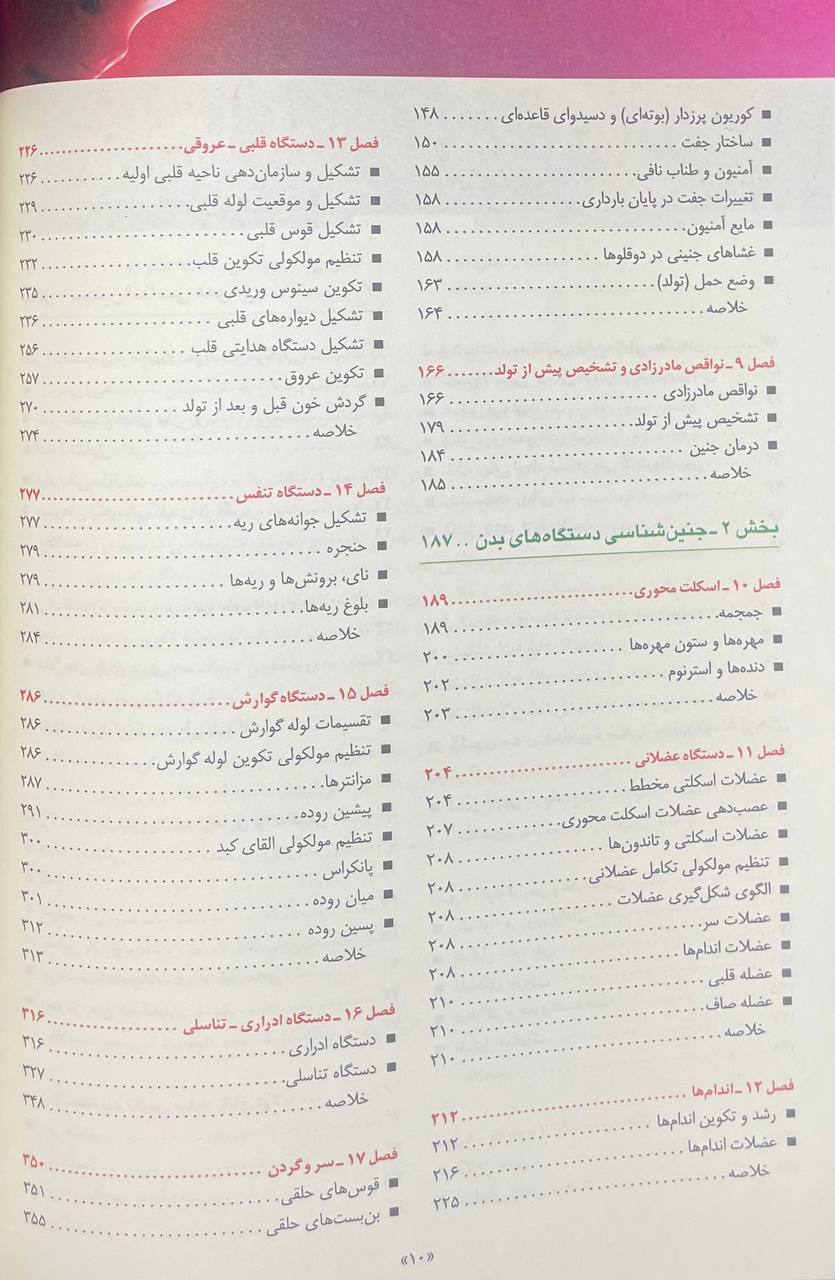 ■ کوریون پرزدار (بوته‌ای) و دسیدوای قاعده‌ای ....... ۱۴۸
■ ساختار جفت ....... ۱۵۰
■ آمنیون و طناب نافی ....... ۱۵۵
■ تغییرات جفت در پایان بارداری ....... ۱۵۸
■ مایع آمنیون ....... ۱۵۸
■ غشاهای جنینی در دوقلوها ....... ۱۵۸
■ وضع حمل (تولد) ....... ۱۶۳
خلاصه ....... ۱۶۴
فصل ۹ ـ نواقص مادرزادی و تشخیص پیش از تولد ....... ۱۶۶
■ نواقص مادرزادی ....... ۱۶۶
■ تشخیص پیش از تولد ....... ۱۷۹
■ درمان جنین ....... ۱۸۴
خلاصه ....... ۱۸۵
بخش ۲ ـ جنین‌شناسی دستگاه‌های بدن .. ۱۸۷
فصل ۱۰ ـ اسکلت محوری ....... ۱۸۹
■ جمجمه ....... ۱۸۹
■ مهره‌ها و ستون مهره‌ها ....... ۲۰۰
■ دنده‌ها و استرنوم ....... ۲۰۲
خلاصه ....... ۲۰۳
فصل ۱۱ ـ دستگاه عضلانی ....... ۲۰۴
■ عضلات اسکلتی مخطط ....... ۲۰۴
■ عصب‌دهی عضلات اسکلت محوری ....... ۲۰۷
■ عضلات اسکلتی و تاندون‌ها ....... ۲۰۸
■ تنظیم مولکولی تکامل عضلانی ....... ۲۰۸
■ الگوی شکل‌گیری عضلات ....... ۲۰۸
■ عضلات سر ....... ۲۰۸
■ عضلات اندام‌ها ....... ۲۰۸
■ عضله قلبی ....... ۲۱۰
■ عضله صاف ....... ۲۱۰
خلاصه ....... ۲۱۰
فصل ۱۲ ـ اندام‌ها ....... ۲۱۲
■ رشد و تکوین اندام‌ها ....... ۲۱۲
■ عضلات اندام‌ها ....... ۲۱۶
خلاصه ....... ۲۲۵
فصل ۱۳ ـ دستگاه قلبی ـ عروقی ....... ۲۲۶
■ تشکیل و سازمان‌دهی ناحیه قلبی اولیه ....... ۲۲۶
■ تشکیل و موقعیت لوله قلبی ....... ۲۲۹
■ تشکیل قوس قلبی ....... ۲۳۰
■ تنظیم مولکولی تکوین قلب ....... ۲۳۲
■ تکوین سینوس وریدی ....... ۲۳۵
■ تشکیل دیواره‌های قلبی ....... ۲۳۶
■ تشکیل دستگاه هدایتی قلب ....... ۲۵۶
■ تکوین عروق ....... ۲۵۷
■ گردش خون قبل و بعد از تولد ....... ۲۷۰
خلاصه ....... ۲۷۴
فصل ۱۴ ـ دستگاه تنفس ....... ۲۷۷
■ تشکیل جوانه‌های ریه ....... ۲۷۷
■ حنجره ....... ۲۷۹
■ نای، برونش‌ها و ریه‌ها ....... ۲۷۹
■ بلوغ ریه‌ها ....... ۲۸۱
خلاصه ....... ۲۸۴
فصل ۱۵ ـ دستگاه گوارش ....... ۲۸۶
■ تقسیمات لوله گوارش ....... ۲۸۶
■ تنظیم مولکولی تکوین لوله گوارش ....... ۲۸۶
■ مزانترها ....... ۲۸۷
■ پیشین روده ....... ۲۹۱
■ تنظیم مولکولی القای کبد ....... ۳۰۰
■ پانکراس ....... ۳۰۰
■ میان روده ....... ۳۰۱
■ پسین روده ....... ۳۱۲
خلاصه ....... ۳۱۳
فصل ۱۶ ـ دستگاه ادراری ـ تناسلی ....... ۳۱۶
■ دستگاه ادراری ....... ۳۱۶
■ دستگاه تناسلی ....... ۳۲۷
خلاصه ....... ۳۴۸
فصل ۱۷ ـ سر و گردن ....... ۳۵۰
■ قوس‌های حلقی ....... ۳۵۱
■ بن‌بست‌های حلقی ....... ۳۵۵
«۱۰»